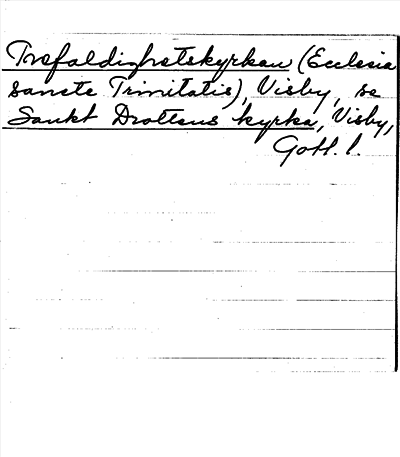 Trefaldighetskyrkan (Ecclesia
sancte Trinitatis), Visby, se
Sankt Drottens kyrka, Visby,
Gotl. l.